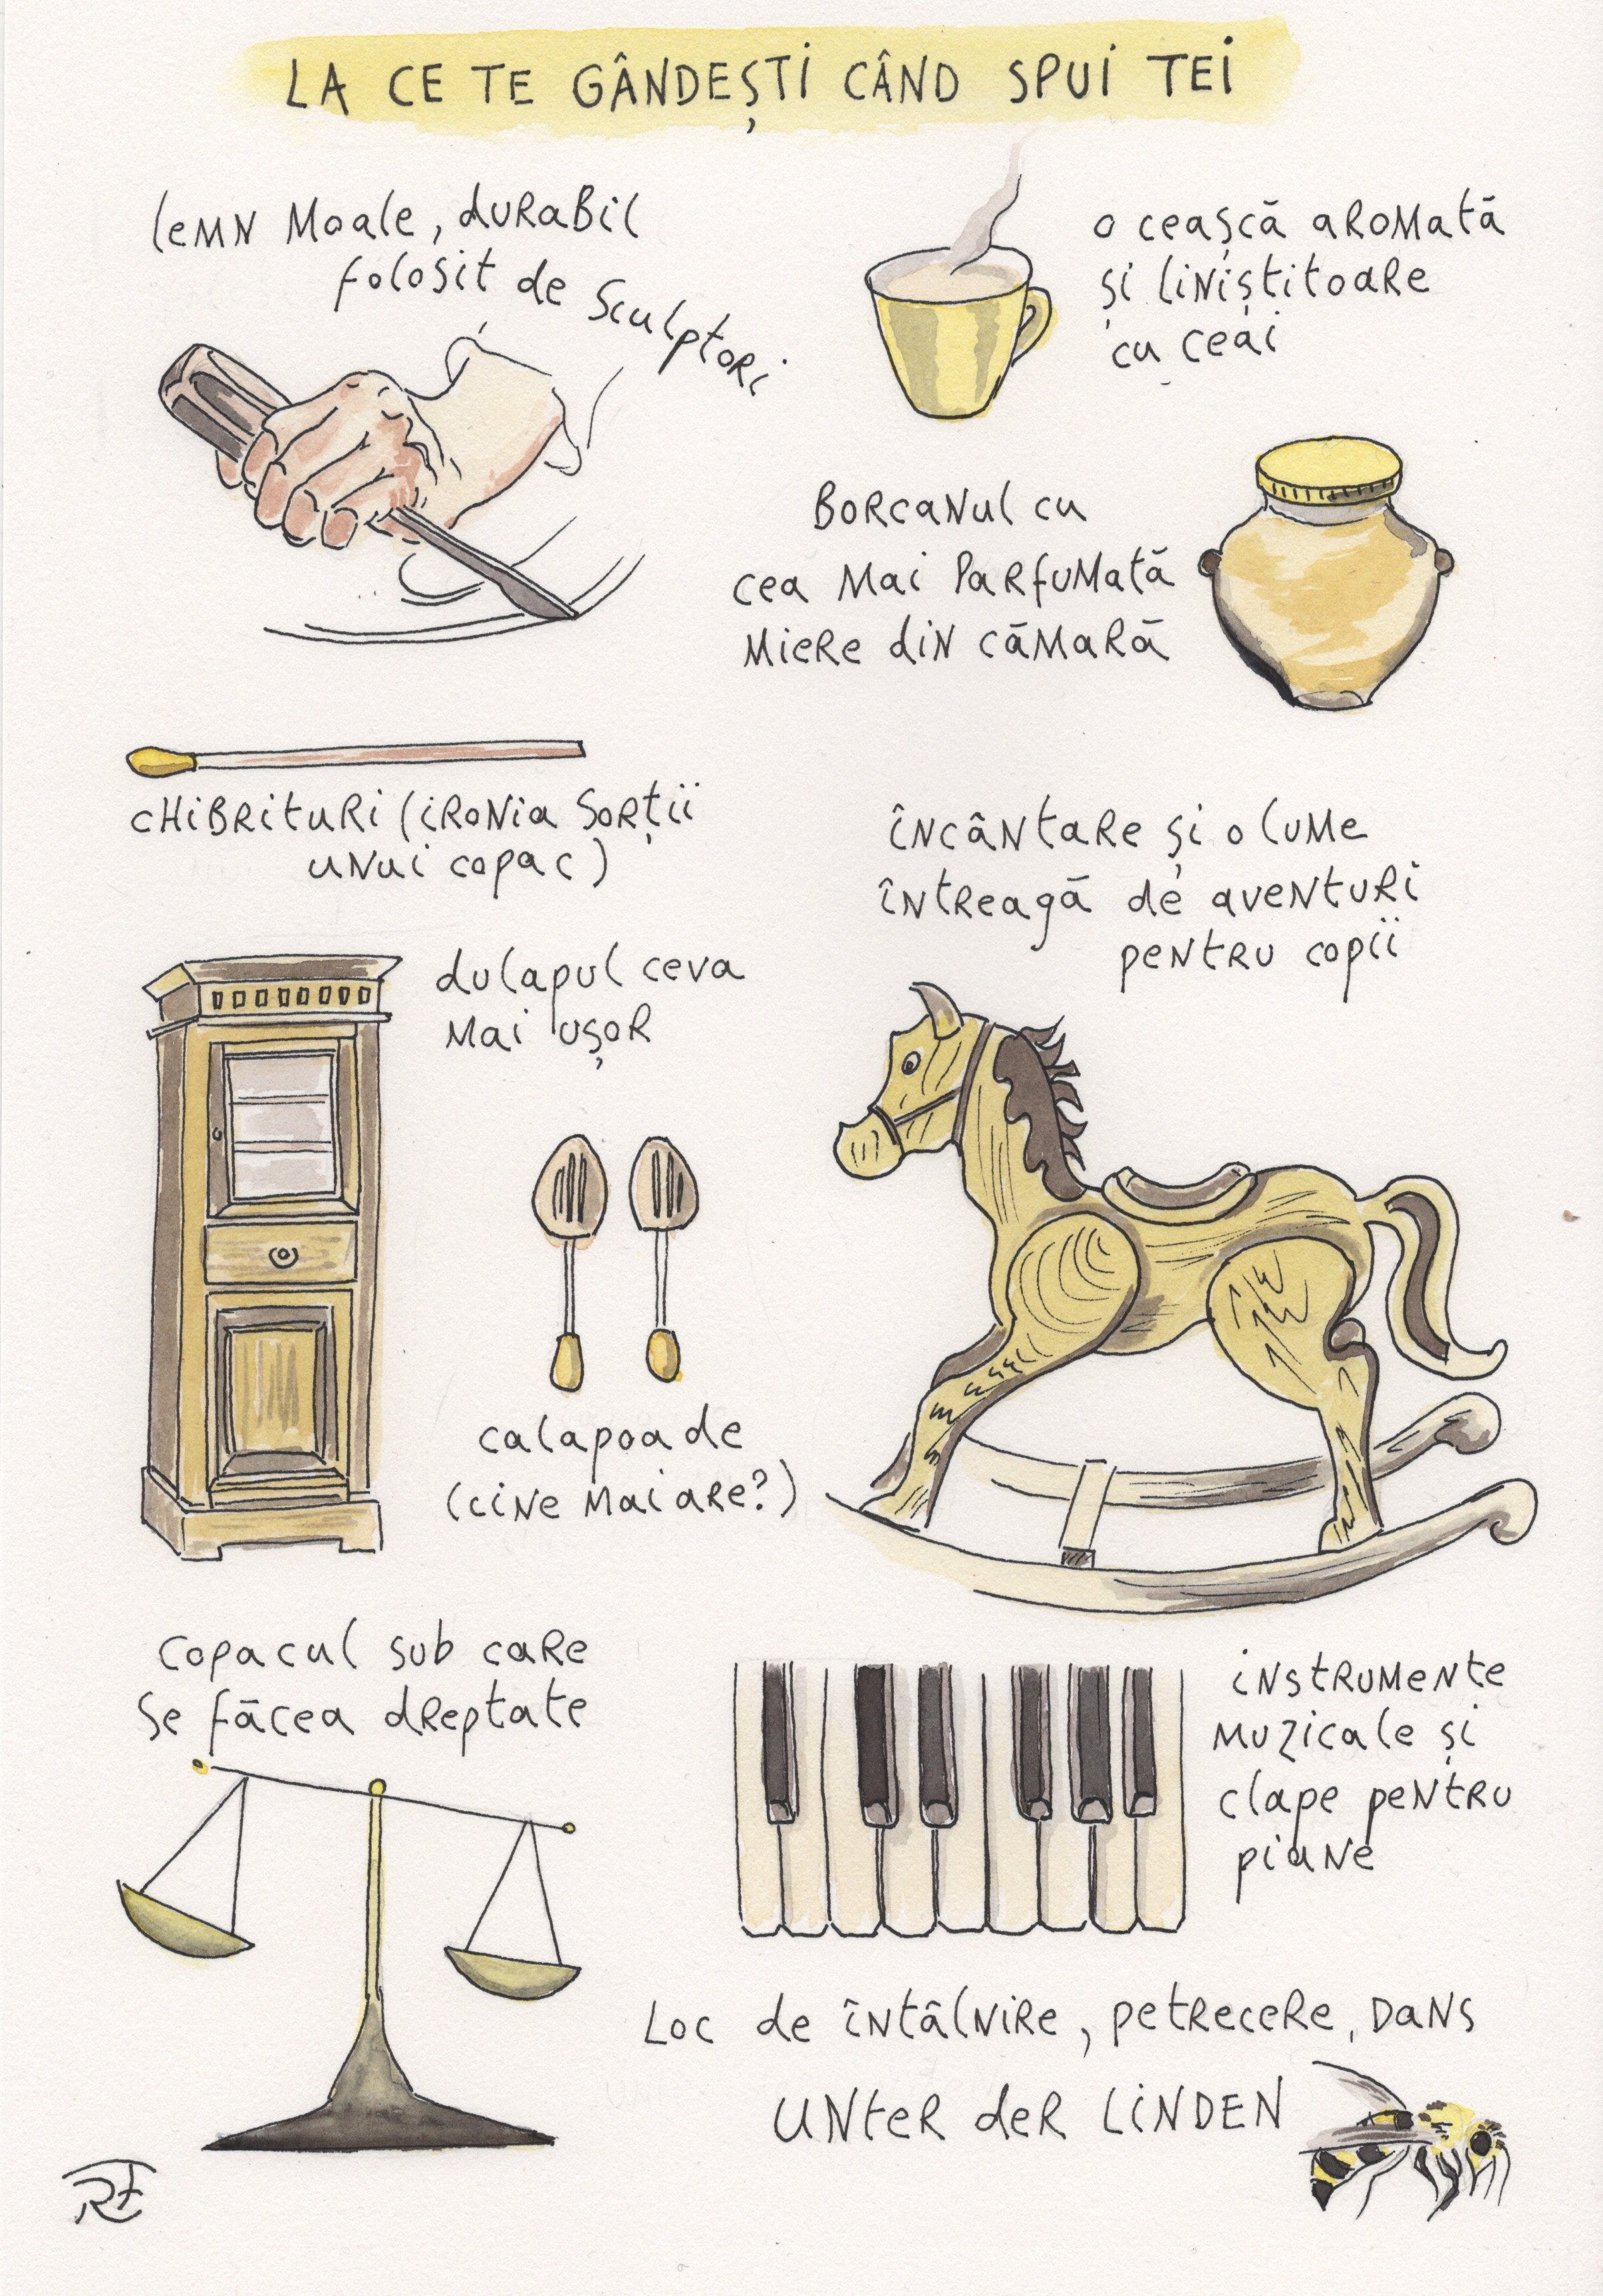 LA CE TE GÂNDEȘTI CÂND SPUI TEI
lemn moale, durabil
folosit de sculptori
o ceașcă aromată
și liniștitoare
cu ceai
Borcanul cu
cea mai parfumată
miere din cămară
chibrituri (ironia sorții
unui copac)
încântare și o lume
întreagă de aventuri
pentru copii
dulapul ceva
mai ușor
calapoade
(cine mai are?)
copacul sub care
se făcea dreptate
instrumente
muzicale și
clape pentru
piane
Loc de întâlnire, petrecere, dans
UNTER DER LINDEN